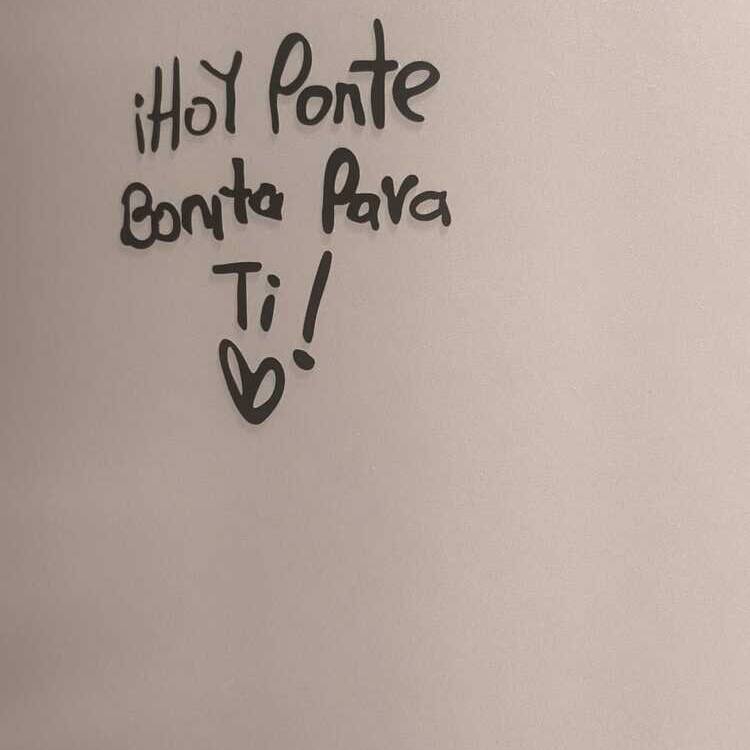 ¡HOY Ponte
Bonita Para
Ti!